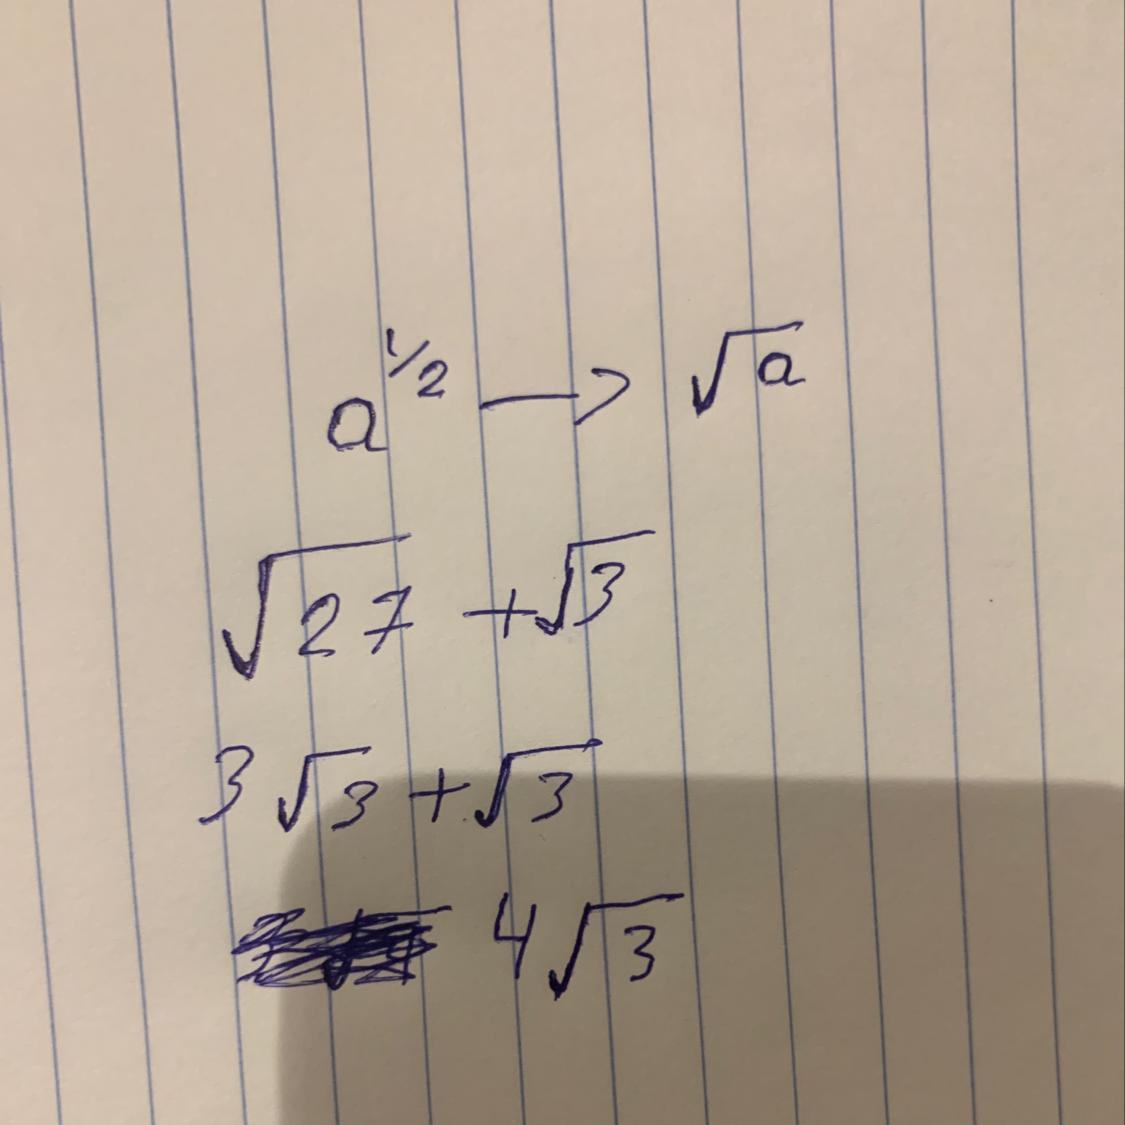 a^{1/2} → √a
√27 + √3
3 √3 + √3
4 √3